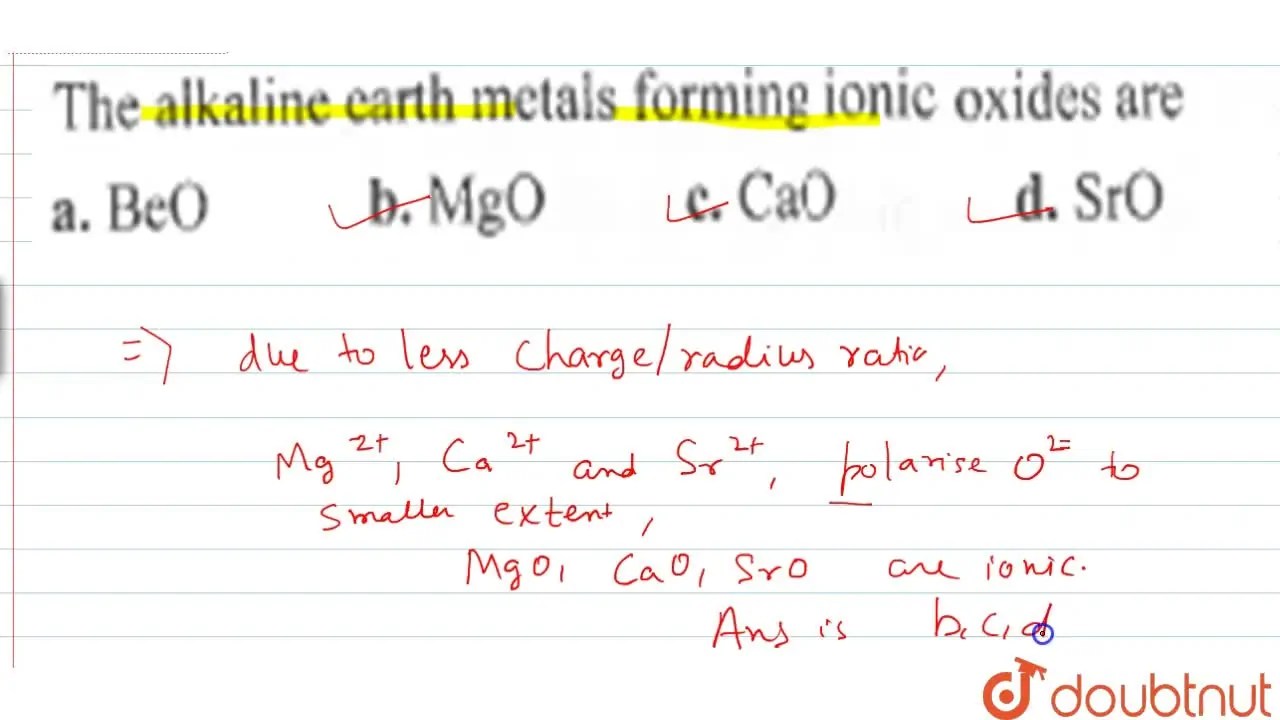 The alkaline earth metals forming ionic oxides are
a. BeO b. MgO c. CaO d. SrO
=> due to less charge/radius ratio,
Mg²⁺, Ca²⁺ and Sr²⁺, polarise O²⁻ to
smaller extent,
MgO, CaO, SrO are ionic.
Ans is b, c, d
doubtnut